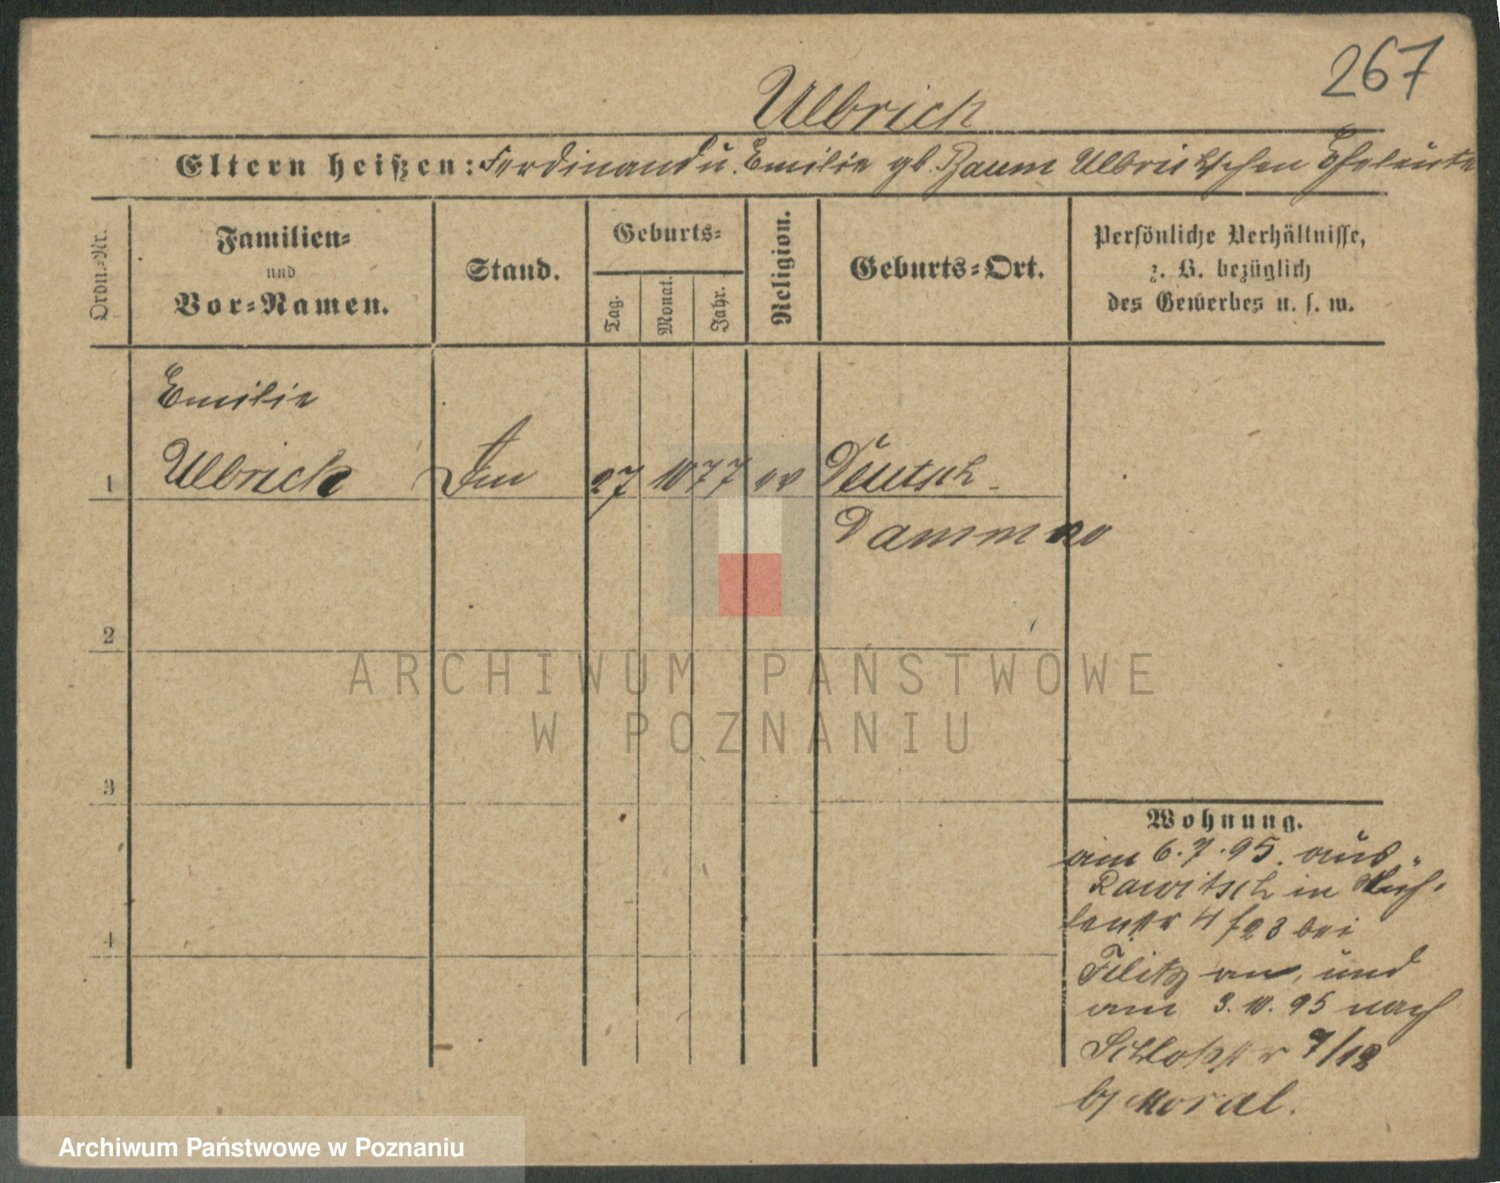 267
Ulbrich
Eltern heißen: Ferdinand u. Emilie gb. Baum Ulbrich'schen Eheleute
Ordn.=Nr.
Familien=
und
Vor=Namen.
Stand.
Geburts=
Tag.
Monat.
Jahr.
Religion.
Geburts=Ort.
Persönliche Verhältnisse,
z. B. bezüglich
des Gewerbes u. s. w.
Emilie
1 Ulbrich 27 10 77 ev Deutsch-
2
3
4
Wohnung.
am 6.7.95. aus
Rawitsch in
4 bei
an, und
am 3.10.95 nach
Schloßstr 7/12
b/ Moral.
ARCHIWUM PAŃSTWOWE
W POZNANIU
Archiwum Państwowe w Poznaniu